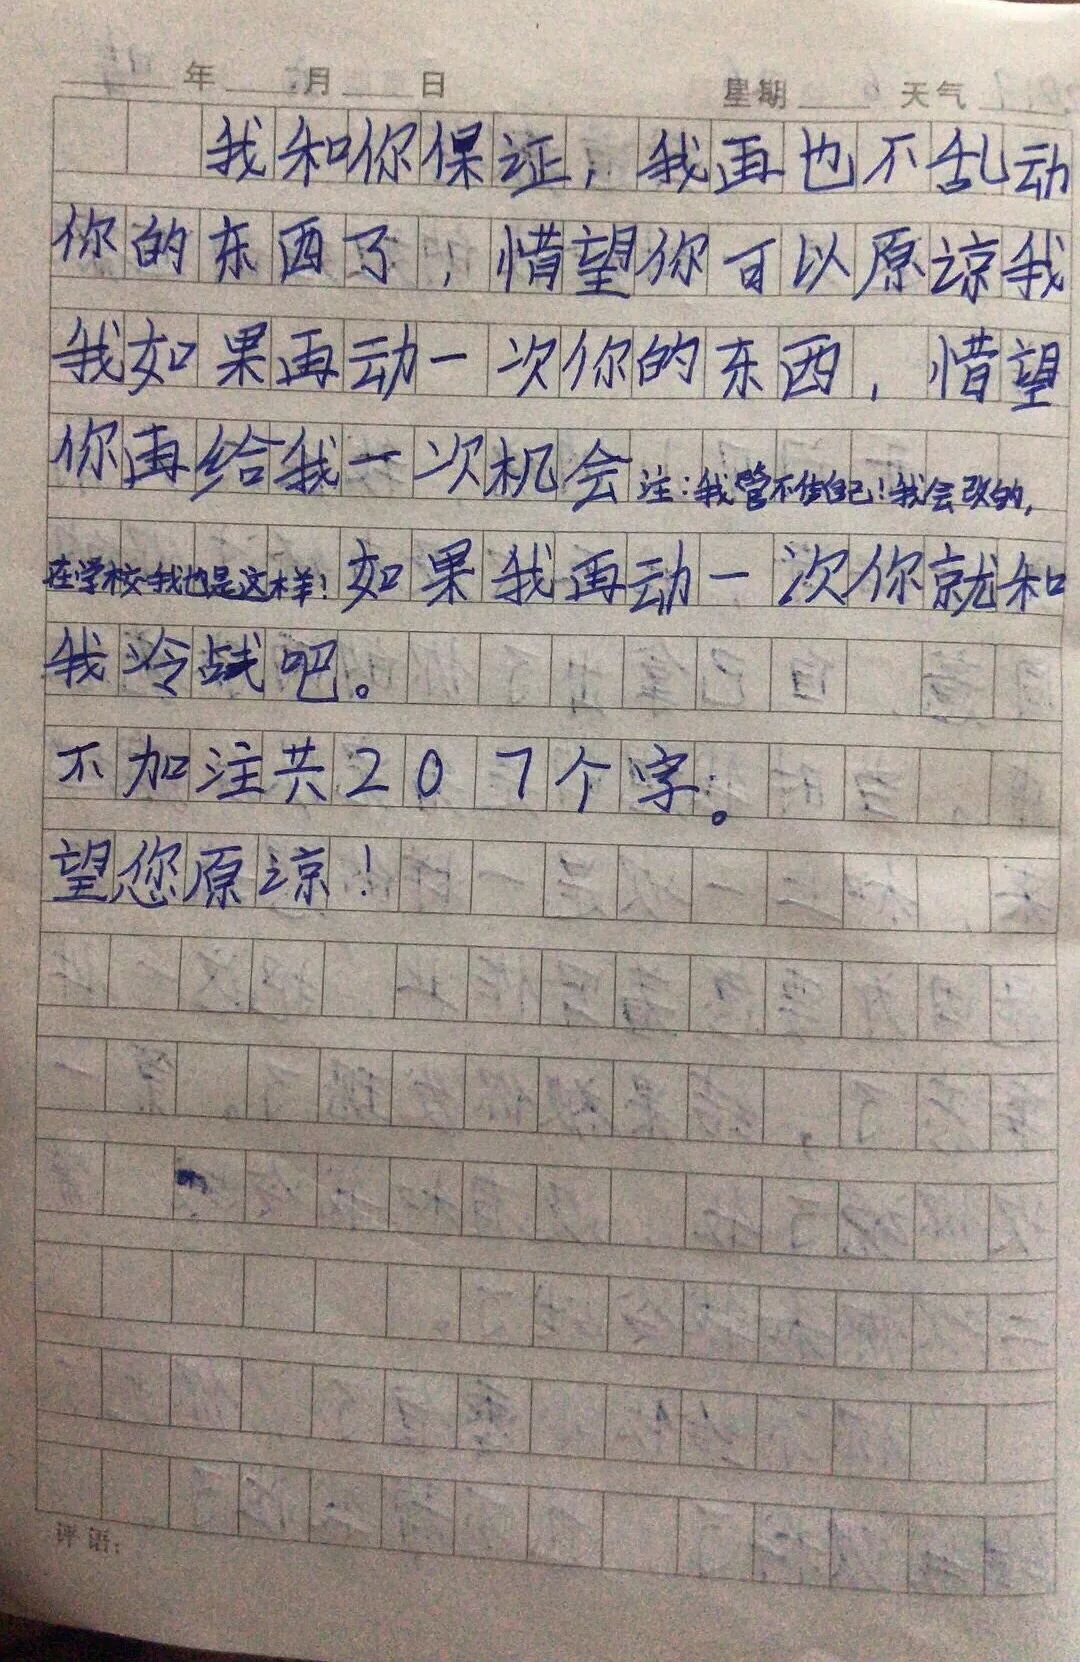 年 月 日 星期 天气
我和你保证，我再也不乱动
你的东西了，惜望你可以原谅我
我如果再动一次你的东西，惜望
你再给我一次机会注：我管不住自己！我会改的，
在学校我也是这样！如果我再动一次你就和
我冷战吧。
不加注共207个字。
望您原谅！
评语：